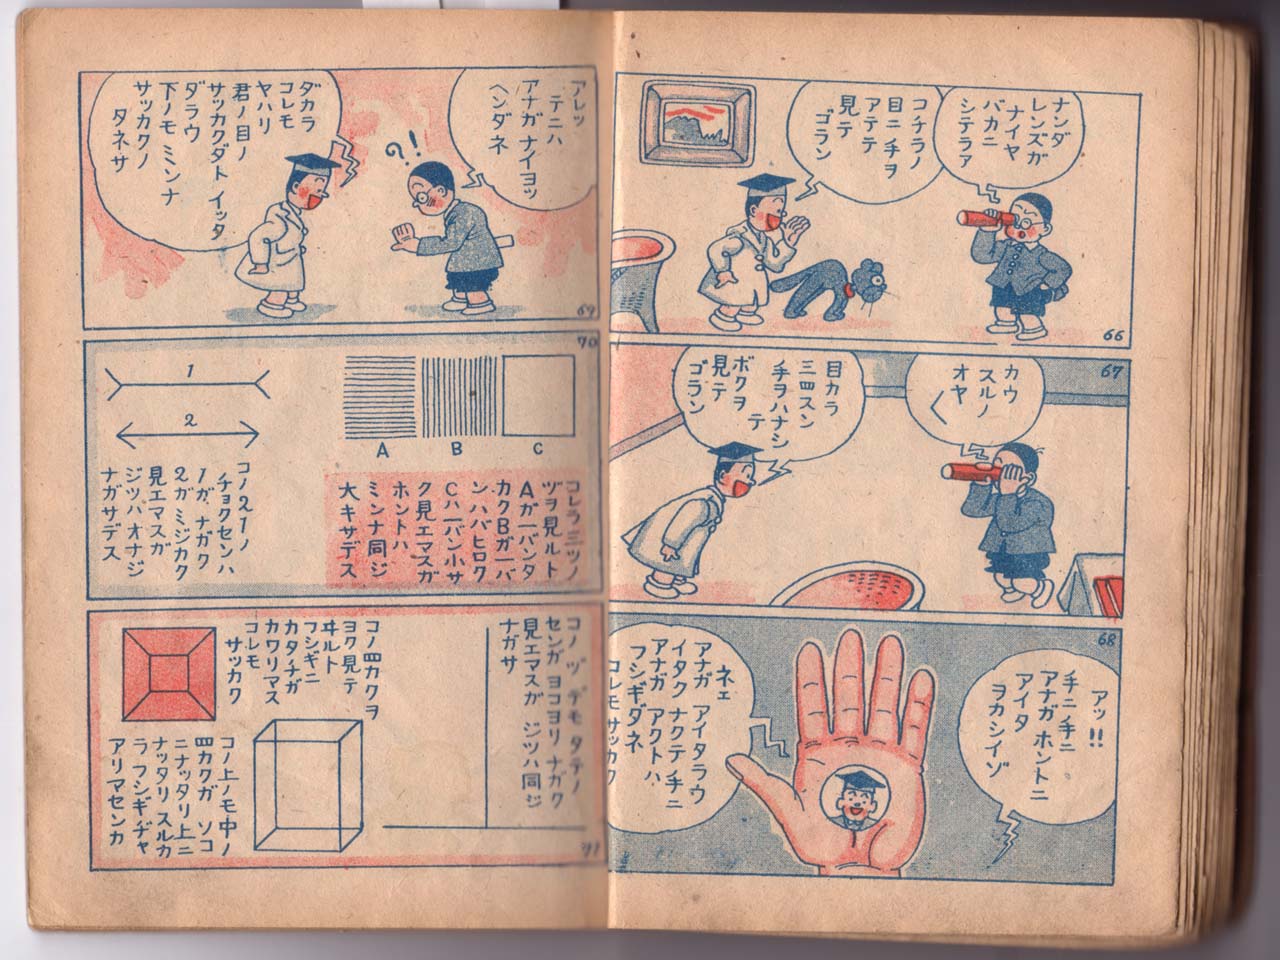 ナンダ
レンズガ
ナイヤ
バカニ
シテラア
コチラノ
目ニ手ヲ
アテテ
見テ
ゴラン
66
67
カウ
スルノ
オヤ〱
目カラ
三四スン
手ヲハナシ
テ
ボクヲ
見テ
ゴラン
68
アッ!!
手ニチニ
アナガ ホントニ
アイタ
ヲカシイゾ
ネェ
アナガ アイタラウ
イタク ナクテ チニ
アナガ アクトハ
フシギダネ
コレモ サッカク
アレッ
テニハ
アナガ ナイヨッ
ヘンダネ
?!
ダカラ
コレモ
ヤハリ
君ノ目ノ
サッカクダト イッタ
ダラウ
下ノモ ミンナ
サッカクノ
タネサ
69
70
A
B
C
コレラ三ツノ
ヅヲ見ルト
Aガ一バンタ
カクBガ一バ
ンハバヒロク
Cハ一バン小サ
ク見エマスガ
ホントハ
ミンナ同ジ
大キサデス
1
2
コノ21ノ
チョクセンハ
1ガ ナガク
2ガミジカク
見エマスガ
ジツハオナジ
ナガサデス
コノ ヅ デモ タテノ
センガ ヨコヨリ ナガク
見エマスガ ジツハ同ジ
ナガサ
コノ四カクヲ
ヨク見テ
ヰルト
フシギニ
カタチガ
カワリマス
コレモ
サッカク
コノ上ノモ中ノ
四カクガ ソコ
ニナッタリ上ニ
ナッタリスルカ
ラ フシギヂャ
アリマセンカ
71